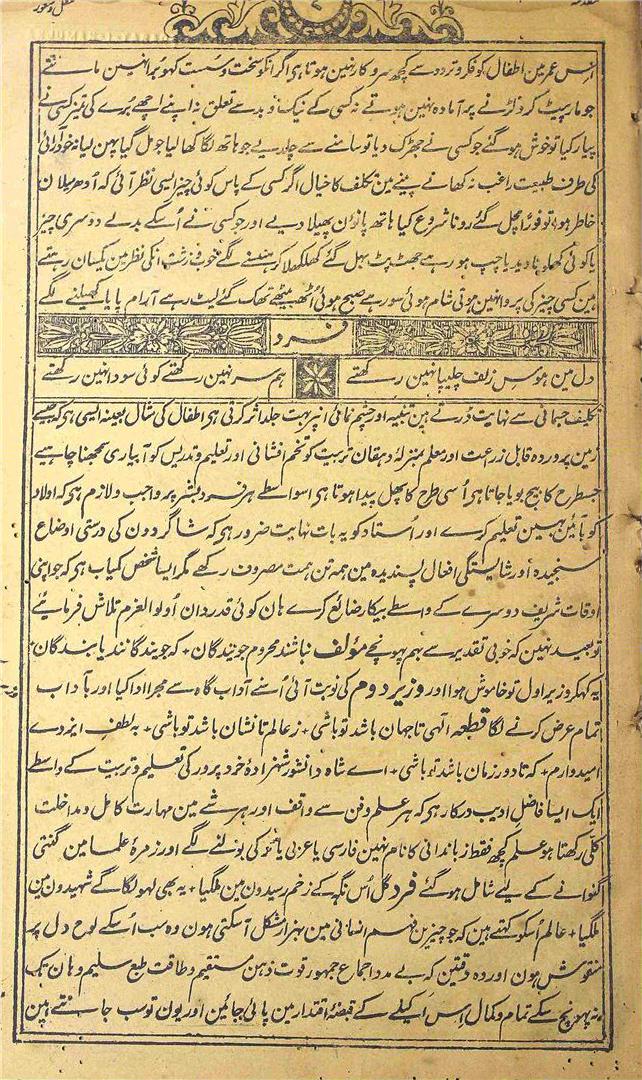 اِس عمر مین اطفال کو فکر و تردد سے کچھ سروکار نہین ہوتا ہی اگر انکو سخت و سست کہو بُرا نہین مانتے
جو مار پیٹ کرو لڑنے پر آمادہ نہین ہوتے نہ کسی کے نیک و بد سے تعلق نہ اپنے اچھے بُرے کی تمیز کسی نے
پیار کیا تو خوش ہو گئے جو کسی نے جھڑک دیا تو سامنے سے چلدیے جو ہاتھ لگا کھا لیا جو مل گیا پہن لیا نہ خود آرائی
کی طرف طبیعت راغب نہ کھانے پینے مین تکلف کا خیال اگر کسی کے پاس کوئی چیز ایسی نظر آئی کہ اُدھر میلان
خاطر ہوا تو فوراً مچل گئے رونا شروع کیا ہاتھ پاؤن پھیلا دیے اور جو کسی نے اُسکے بدلے دوسری چیز
یا کوئی کھلونا دیدیا چپ ہو رہے جھٹ پٹ بہل گئے کھلکھلا کر ہنسنے لگے خوب و زشت انکی نظر مین یکسان رہتے
ہین کسی چیز کی پروا نہین ہوتی شام ہوئی سو رہے صبح ہوئی اُٹھ بیٹھے تھک گئے لیٹ رہے آرام پایا کھیلنے لگے
فرد
دل مین ہوس زلف چلیپا نہین رکھتے ہم سر نہین رکھتے کوئی سودا نہین رکھتے
تکلیف جسمانی سے نہایت ڈرتے ہین تنبیہ اور چشم نمائی انپر بہت جلد اثر کرتی ہی اطفال کی مثال بعینہ ایسی ہی کہ جیسے
زمین پروردہ قابل زراعت اور معلم بمنزلۂ دہقان تربیت کو تخم افشانی اور تعلیم و تدریس کو آبیاری سمجھنا چاہیے
جسطرح کا بیج بویا جاتا ہی اُسی طرح کا پھل پیدا ہوتا ہی اسواسطے ہر فرد بشر پر واجب و لازم ہی کہ اولاد
کو بآئین بہین تعلیم کرے اور اُستاد کو یہ بات نہایت ضرور ہی کہ شاگردون کی درستی اوضاع
سنجیدہ اور شایستگی افعال پسندیدہ مین ہمہ تن ہمت مصروف رکھے مگر ایسا شخص کمیاب ہی کہ جو اپنی
اوقات شریف دوسرے کے واسطے بیکار ضائع کرے ہان کوئی قدردان اُولو العزم تلاش فرمائیے
تو بعید نہین کہ خوبی تقدیر سے بہم پہونچے مؤلف نباشند محروم جویندگان + کہ جویندگانند یابندگان
یہ کہکر وزیر اول تو خاموش ہوا اور وزیر دوم کی نوبت آئی اُسنے آداب گاہ سے مجرا ادا کیا اور بآداب
تمام عرض کرنے لگا قطعہ الٰہی تا جہان باشد تو باشی + ز عالم تا نشان باشد تو باشی + بہ لطف ایزدے
امیدوارم + کہ تا دور زمان باشد تو باشی + اے شاہ دانشور شہزادۂ خرد پرور کی تعلیم و تربیت کے واسطے
ایک ایسا فاضل ادیب درکار ہی کہ ہر علم و فن سے واقف اور ہر شے مین مہارت کامل و مداخلت
کلّی رکھتا ہو علم کچھ فقط زباندانی کا نام نہین فارسی یا عربی یا کی بولنے لگے اور زمرۂ علما مین گنتی
گنوانے کے لیے شامل ہو گئے فرد گل اُس نگہ کے زخم رسیدون مین ملگیا + یہ بھی لہو لگا کے شہیدون مین
ملگیا + عالم اُسکو کہتے ہین کہ جو چیزین فہم انسانی مین بہزار مشکل آسکتی ہون وہ سب اُسکے لوح دل پر
منقوش ہون اور وہ دقیقین کہ بے مدد اجماع جمہور قوت ذہن مستقیم و طاقت طبع سلیم وہان تک
نہ پہونچ سکے تمام و کمال اِس اکیلے کے قبضۂ اقتدار مین پائی جائین اور یون تو سب جانتے ہین